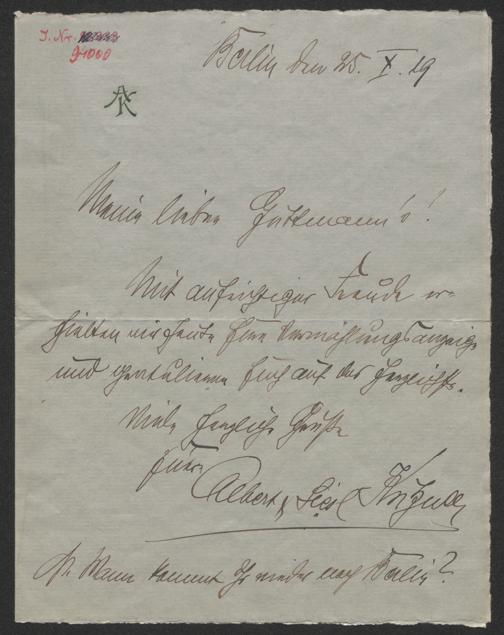 J. Nr.
91000
AK
Berlin den 25. X. 19
Meine lieben Guttmann's!
Mit aufrichtiger Freude er-
hielten wir heute Eure Vermählungsanzeige
und gratulieren Euch auf das herzlichste.
Viele herzliche Grüße
Eure
Albert &
Ps. Wann kommt Ihr wieder nach Berlin?